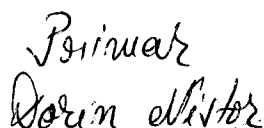 Primar
Dorin Nistor